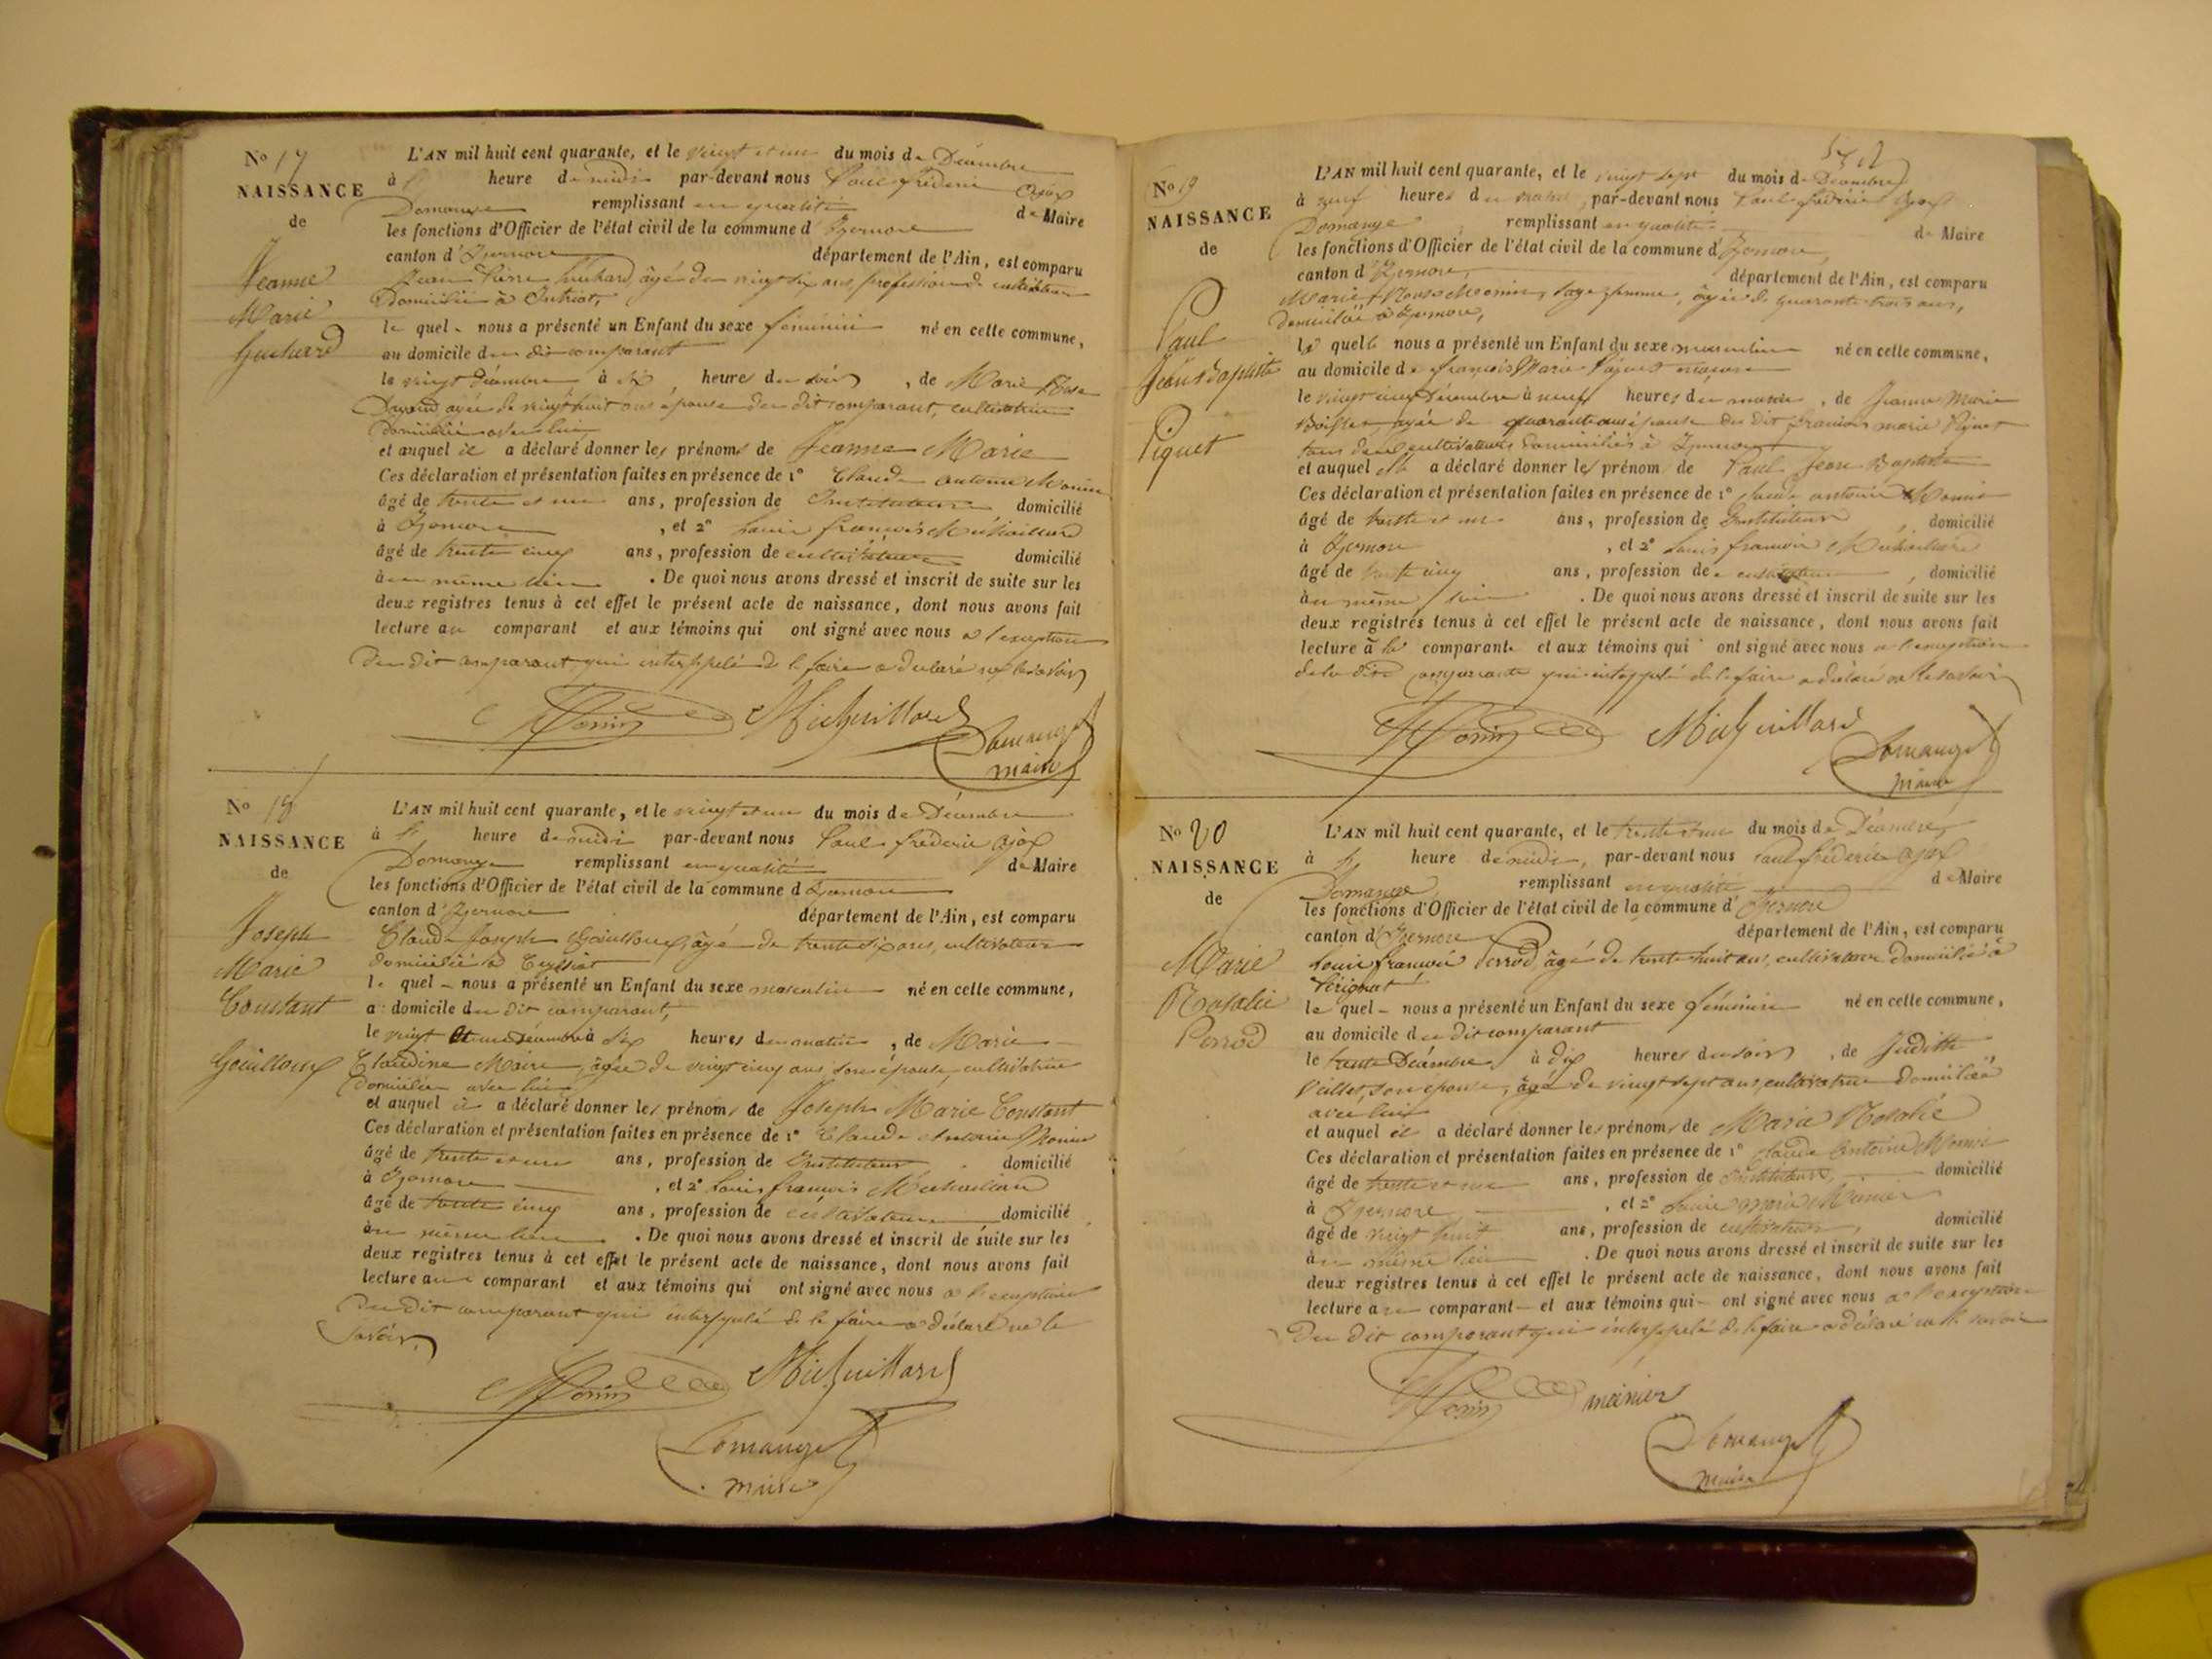 N° 17
NAISSANCE
de
Jeanne
Marie
Guichard
L'AN mil huit cent quarante, et le vingt et un du mois de Décembre
à heure de midi par-devant nous Paul frédéric Ajax
Domange remplissant en qualité de Maire
les fonctions d'Officier de l'état civil de la commune d'Izernore
canton d'Izernore département de l'Ain, est comparu
Jean Pierre Guichard, âgé de vingt six ans, profession de cultivateur
Domicilié à Intriat,
le quel nous a présenté un Enfant du sexe féminin né en cette commune,
au domicile du dit comparant
le vingt Décembre à six heures du soir, de Marie Rose
âgée de vingt huit ans épouse du dit comparant, cultivatrice
Domiciliée avec lui,
et auquel il a déclaré donner les prénoms de Jeanne Marie
Ces déclaration et présentation faites en présence de 1° Claude antoine Monin
âgé de trente et un ans, profession de Instituteur domicilié
à Izernore, et 2° Louis françois Michaillard
âgé de trente cinq ans, profession de cultivateur domicilié
au même lieu. De quoi nous avons dressé et inscrit de suite sur les
deux registres tenus à cet effet le présent acte de naissance, dont nous avons fait
lecture au comparant et aux témoins qui ont signé avec nous à l'exception
du dit comparant qui interppelé de le faire a déclaré ne le savoir
Monin
Domange
maire
N° 18
NAISSANCE
de
Joseph
Marie
Constant
Goüilloux
L'AN mil huit cent quarante, et le vingt et un du mois de Décembre
à heure de midi par-devant nous Paul frédéric Ajax
Domange remplissant en qualité de Maire
les fonctions d'Officier de l'état civil de la commune d'Izernore
canton d'Izernore département de l'Ain, est comparu
Claude Joseph Goüilloux, âgé de trente six ans, cultivateur
domicilié à Ceyssiat
le quel nous a présenté un Enfant du sexe masculin né en cette commune,
a domicile du dit comparant,
le vingt et un décembre à six heures du matin, de Marie
Claudine Maire, âgée de vingt cinq ans, son épouse, cultivatrice
Domiciliée avec lui
et auquel il a déclaré donner les prénoms de Joseph Marie Constant
Ces déclaration et présentation faites en présence de 1° Claude Antoine Monin
âgé de trente et un ans, profession de Instituteur domicilié
à Izernore, et 2° Louis françois Michaillard
âgé de trente cinq ans, profession de cultivateur domicilié
au même lieu. De quoi nous avons dressé et inscrit de suite sur les
deux registres tenus à cet effet le présent acte de naissance, dont nous avons fait
lecture au comparant et aux témoins qui ont signé avec nous à l'exception
du dit comparant qui interppelé de le faire a déclaré ne le
savoir
Monin
Domange
maire
N° 19
NAISSANCE
de
Paul
Jean Baptiste
Piquet
L'AN mil huit cent quarante, et le vingt sept du mois de Décembre
à neuf heures du matin, par-devant nous Paul frédéric Ajax
Domange remplissant en qualité de Maire
les fonctions d'Officier de l'état civil de la commune d'Izernore,
canton d'Izernore, département de l'Ain, est comparu
Marie Rose Monin, sage femme, âgée de quarante trois ans,
domiciliée à Izernore,
la quelle nous a présenté un Enfant du sexe masculin né en cette commune,
au domicile de françois Marie Piquet
le vingt cinq Décembre à neuf heures du matin, de Jeanne Marie
âgée de quarante ans épouse du dit françois marie Piquet
tous deux cultivateurs domiciliés à Izernore
et auquel elle a déclaré donner les prénom de Paul Jean Baptiste
Ces déclaration et présentation faites en présence de 1° Claude antoine Monin
âgé de trente et un ans, profession de Instituteur domicilié
à Izernore, et 2° Louis françois Michaillard
âgé de trente cinq ans, profession de cultivateur, domicilié
au même lieu. De quoi nous avons dressé et inscrit de suite sur les
deux registres tenus à cet effet le présent acte de naissance, dont nous avons fait
lecture à la comparante et aux témoins qui ont signé avec nous à l'exception
de la dite comparante qui interppelé de le faire a déclaré ne le savoir
Monin
Domange
maire
N° 20
NAISSANCE
de
Marie
Rosalie
Perrod
L'AN mil huit cent quarante, et le trente et un du mois de Décembre
à heure de midi, par-devant nous Paul frédéric Ajax
Domange remplissant en qualité de Maire
les fonctions d'Officier de l'état civil de la commune d'Izernore
canton d'Izernore département de l'Ain, est comparu
Louis françois Perrod, âgé de trente huit ans, cultivateur domicilié à
Pérignat
le quel nous a présenté un Enfant du sexe féminin né en cette commune,
au domicile du dit comparant
le trente Décembre à dix heures du soir, de Judith
son épouse, âgé de vingt sept ans, cultivatrice domiciliée
avec lui
et auquel il a déclaré donner les prénoms de Marie Rosalie
Ces déclaration et présentation faites en présence de 1° Claude Antoine Monin
âgé de trente et un ans, profession de Instituteur, domicilié
à Izernore, et 2° Marie
âgé de vingt huit ans, profession de cultivateur, domicilié
au même lieu. De quoi nous avons dressé et inscrit de suite sur les
deux registres tenus à cet effet le présent acte de naissance, dont nous avons fait
lecture au comparant et aux témoins qui ont signé avec nous à l'exception
du dit comparant qui interppelé de le faire a déclaré ne le savoir
Monin
Domange
maire